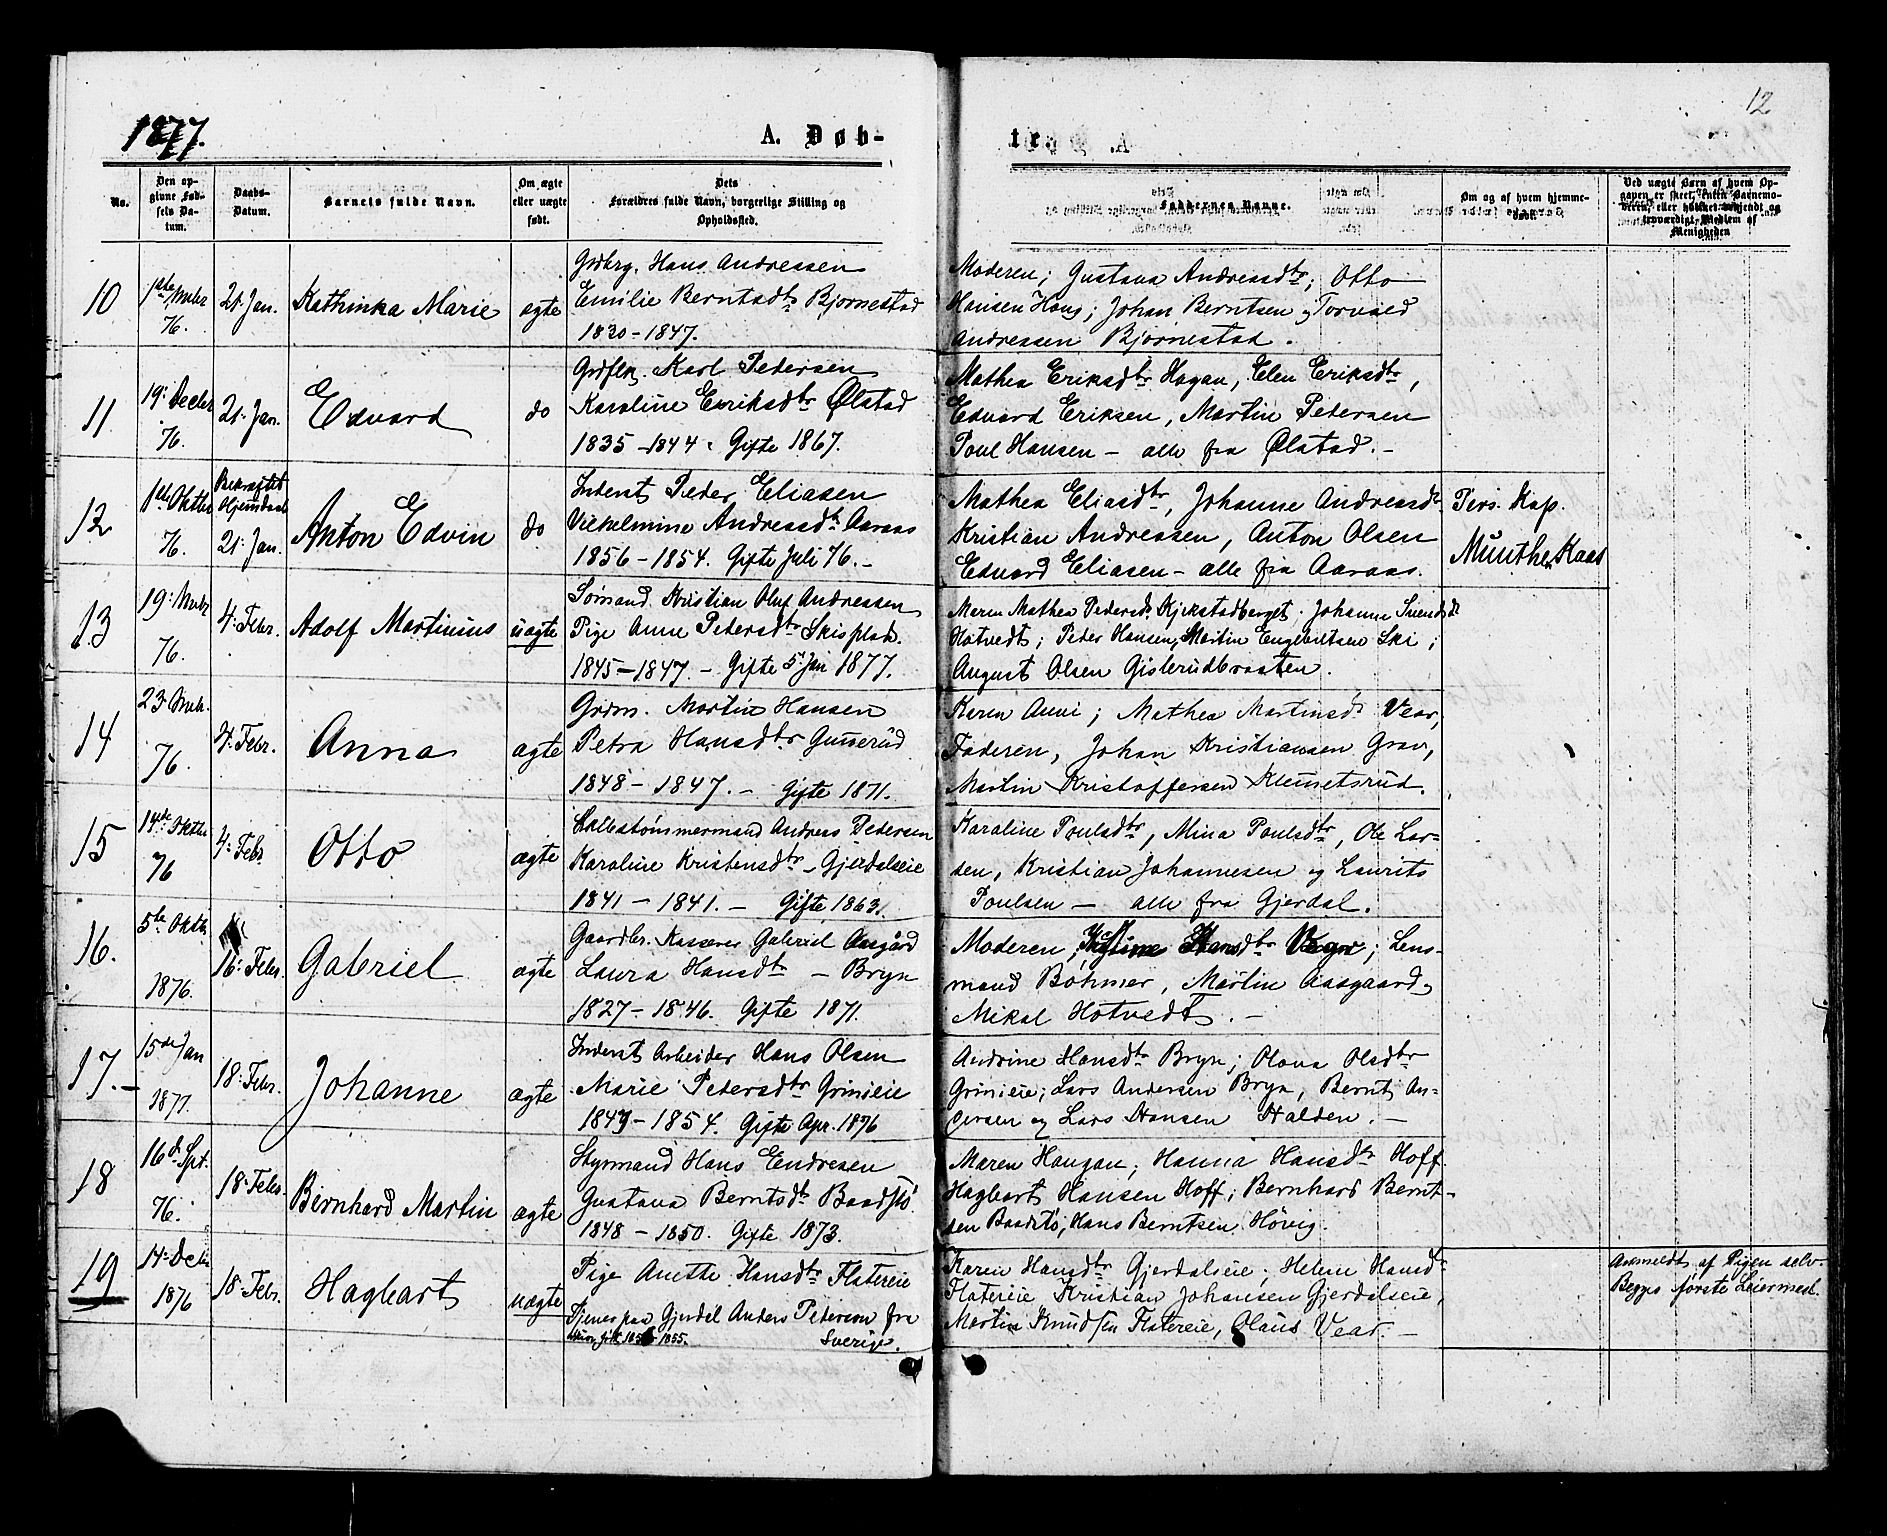 1877.
A. Døb-
tr.
12
No.
Den op-
givne Fød-
sels Da-
tum.
Daabs-
Datum.
Barnets fulde Navn.
Om ægte
eller uægte
født.
Dets
Forældres fulde Navn, borgerlige Stilling og
Opholdssted.
Faddernes Navne.
Om og af hvem hjemme-
døbt.
Ved uægte Børn af hvem Op-
gaven er skeet, enten Barnemo-
deren, eller
troværdigt Medlem af
Menigheden
10
76.
21. Jan.
Kathinka Marie
ægte
Grdbrg. Hans Andreasen
Emilie Berntsdtr Bjørnestad
1830-1847.
Moderen; Gustava Andreasdtr; Otto
Hansen Haug; Johan Berntsen og Torvald
Andreasen Bjørnestad.
11
19. Decbr
76.
21. Jan.
Edvard
do
Karl Pedersen
Karoline Eriksdtr Ølstad
1835-1844. Gifte 1867.
Mathea Eriksdtr Hagan, Elen Eriksdtr,
Edvard Eriksen, Martin Pedersen
Poul Hansen - alle fra Ølstad.-
12
1ste Oktbr
76.
Bekræftet
Hjemdaab
21. Jan.
Anton Edvin
do
Inderst Peder Eliasen
Vilhelmine Andreasdtr Aaraas
1856-1854. Gifte Juli 76.-
Mathea Eliasdtr, Johanne Andreasdtr
Kristian Andreasen, Anton Olsen
Edvard Eliasen - alle fra Aaraas.
Pers. Kap.
Munthe Kaas
13
76.
4. Febr.
Adolf Martinius
uægte
Sømand Kristian Oluf Andreasen
Pige Anne Pedersdtr Skisplads.
1845-1847.- Gifte 5 Jan 1877.
Maren Mathea Pedersdtr Kjekstadberget; Johanne Svendsdtr
Hotvedt; Peder Hansen, Martin Engebretsen Ski;
August Olsen Gislerudbraaten.
14
76.
4. Febr.
Anna
ægte
Martin Hansen
Petra Hansdtr Gunerud
1848-1847.- Gifte 1871.
Karen Anni; Mathea Martinsdtr Vear,
Faderen, Johan Kristiansen Grav,
Martin Kristoffersen Klemetsrud.
15
14de Oktbr
76
4. Febr
Otto
ægte
Andreas Pedersen
Karoline Kristensdtr - Gjerdalseie
1841-1841.- Gifte 1863.
Karoline Poulsdtr, Mina Poulsdtr, Ole Lar-
sen, Kristian Johannesen og Laurits
Poulsen - alle fra Gjerdal.
16.
5te Oktbr
1876.
16. Febr.
Gabriel
ægte
Gaardbr. Kasserer Gabriel Aasgård
Laura Hansdtr - Bryn
1827-1846. Gifte 1871.
Moderen, Hansdtr; Lens-
mand Bøhmer, Martin Aasgaard,
Mikal Hotvedt.-
17.-
15de Jan
1877.
18. Febr.
Johanne
ægte
Inderst Arbeider Hans Olsen
Marie Petersdtr Grinieie
1847-1854. Gifte Apr. 1876
Andrine Hansdtr Bryn; Olava Olsdtr
Grinieie; Lars Andersen Bryn, Bernt An-
dersen og Lars Hansen Halden.-
18
16de Spt.
76.
18. Febr.
Bernhard Martin
ægte
Styrmand Hans Endresen
Gustava Berntsdtr Baadstø.
1848-1850. Gifte 1873.
Maren Haugan; Hanna Hansdtr Hoff
Hagbart Hansen Hoff; Bernhard Bernt-
sen Baadstø; Hans Berntsen Høvig.
19
1876
18. Febr.
Hagbart
uægte
Pige Anette Hansdtr Flatereie
Tjener paa Gjerdal Anders Peterson fra
1855. Sverige.
Karen Hansdtr Gjerdalseie; Helene Hansdtr
Flatereie Kristian Johansen Gjerdalseie,
Martin Knudsen Flatereie, Olaus Vear.-
Anmeldt af Pigen selv.
Begges første Leiermaal.